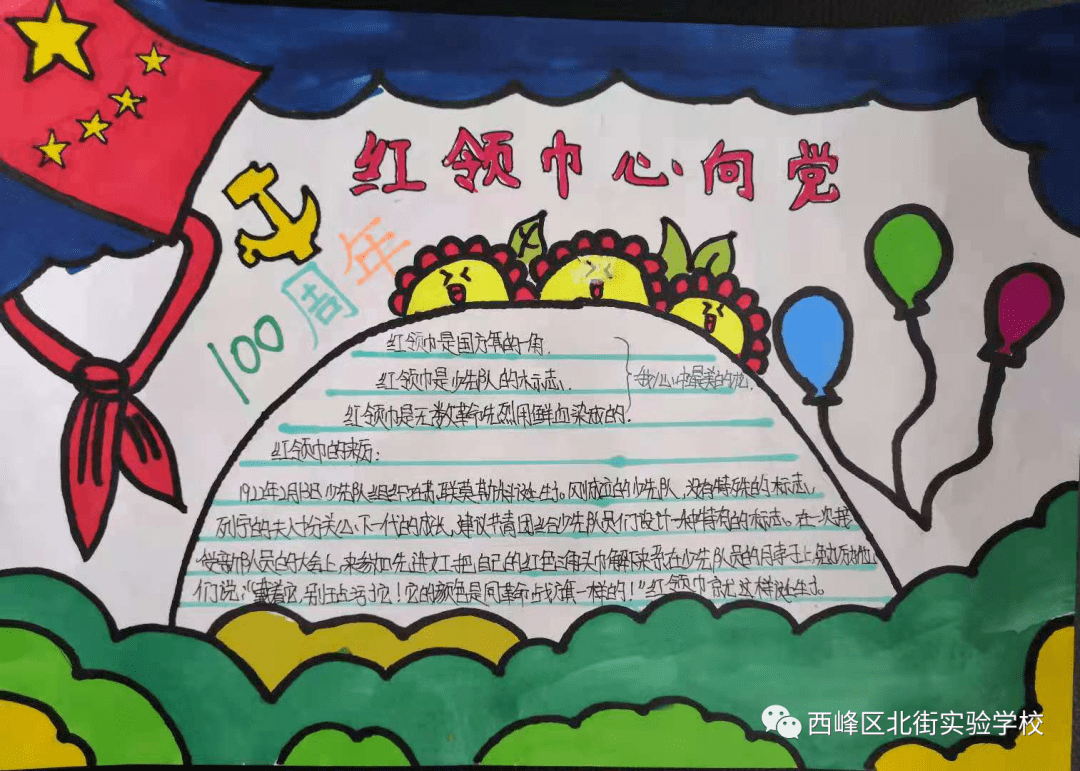 红领巾心向党
100周年
红领巾是国旗的一角.
红领巾是少先队的标志.
我心中最美的
红领巾是无数革命先烈用鲜血染成的.
红领巾的来历:
1922年2月13日少先队组织在苏联莫斯科诞生。刚成立的少先队,没有特殊的标志,
列宁的夫人十分关心下一代的成长,建议共青团当给少先队员们设计一种特有的标志。在一次接
受新队员的大会上,来参加先进女工把自己的红色三角头巾解下来系在少先队员的脖子上,勉励他
们说:"戴着它,别玷污了它!它的颜色是同革命战旗一样的!"红领巾就这样诞生了.
西峰区北街实验学校